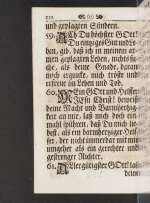 und geplagten Sündern.
59. Ach Du höchster GOtt!
Du einziges Gut und Le-
ben, gib, daß ich in meinem ar-
men geplagten Leben, nichts su-
che, als deine Gnade, darum
mich erquicke, mich tröste und
erfreue im Leben und Tod.
60. Mein GOtt und Helffer
JEsu Christ! beweise
deine Macht und Barmhertzig-
keit an mir, laß mich doch ein-
mahl spühren, daß Du mehr
seyest, als ein barmhertziger Hel-
fer, der nicht immerdar mit mir
umgehet als ein gerechter und
gestrenger Richter.
61. Allergütigster GOtt! laß